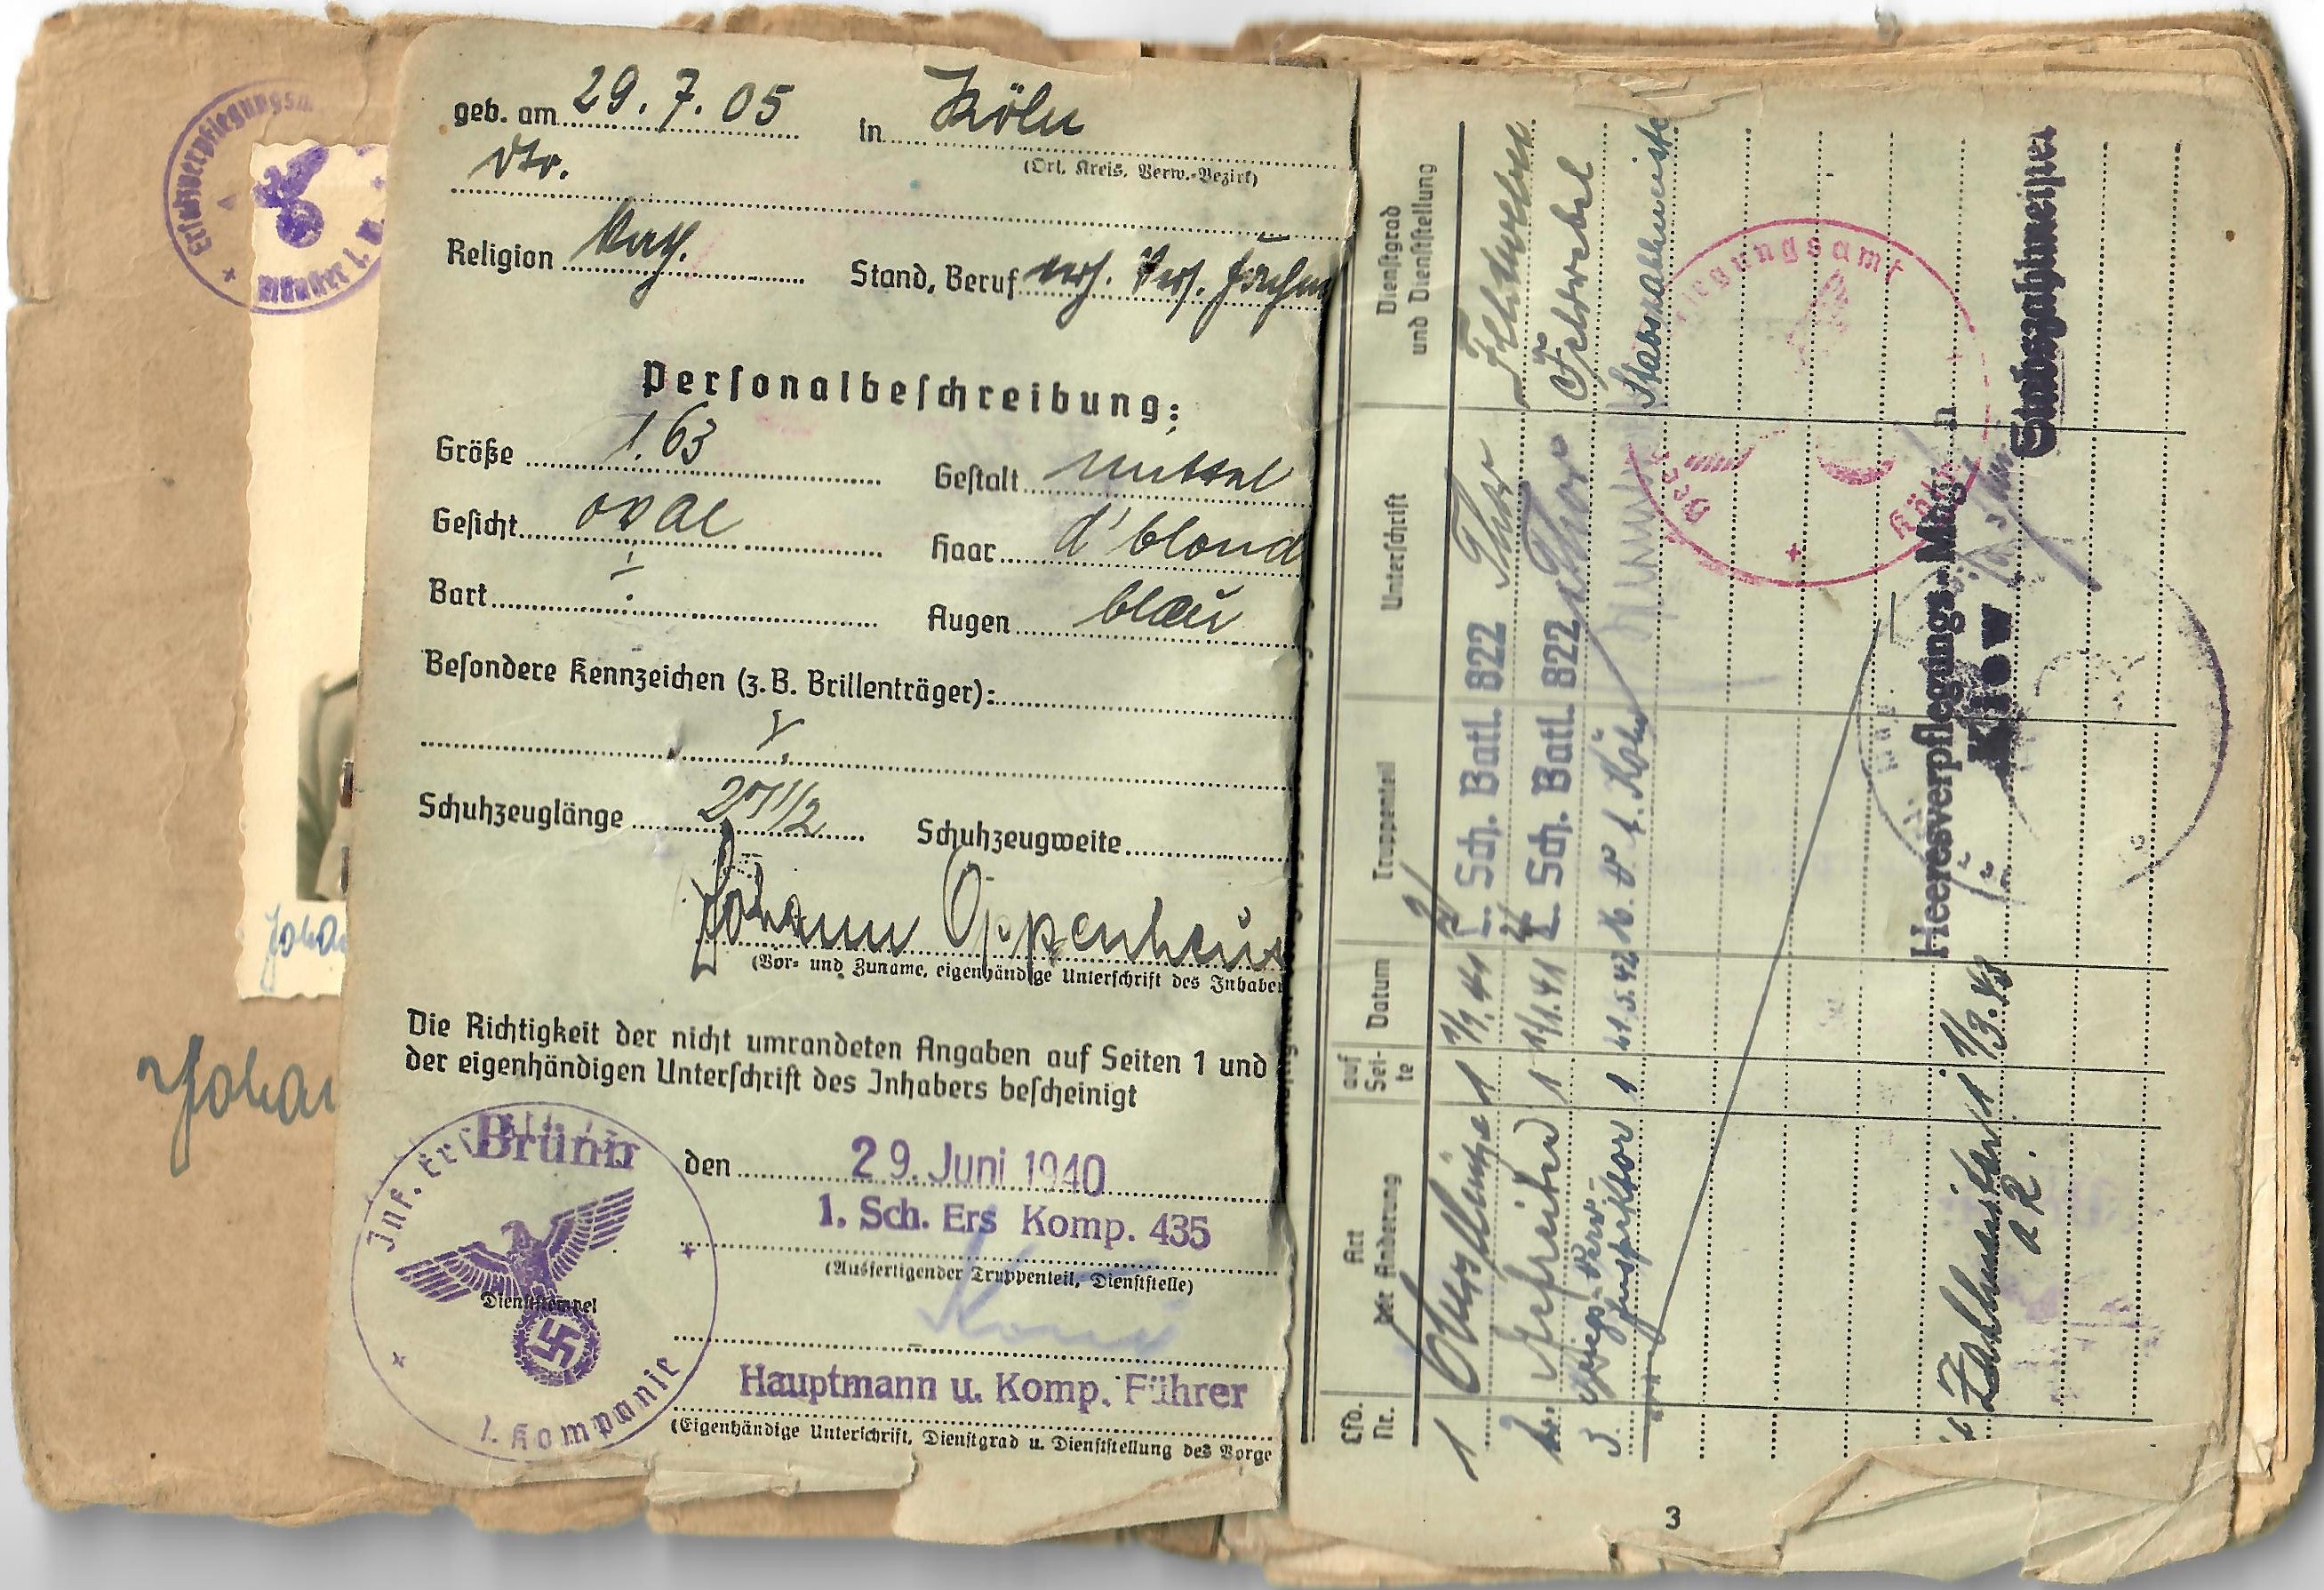 Johan
geb. am 29.7.05 in Köln
Dto.
(Ort, Kreis, Verw.-Bezirk)
Religion kath. Stand, Beruf verh.
Personalbeschreibung:
Größe 1.63 Gestalt mittel
Gesicht oval Haar d'blond
Bart Augen blau
Besondere Kennzeichen (z. B. Brillenträger):
Schuhzeuglänge 27 1/2 Schuhzeugweite
Johann Oppenhäus
(Vor- und Zuname, eigenhändige Unterschrift des Inhaber
Die Richtigkeit der nicht umrandeten Angaben auf Seiten 1 und
der eigenhändigen Unterschrift des Inhabers bescheinigt
Brünn den 29. Juni 1940
1. Sch. Ers Komp. 435
(Ausfertigender Truppenteil, Dienststelle)
Dienststempel
Hauptmann u. Komp. Führer
(Eigenhändige Unterschrift, Dienstgrad u. Dienststellung des Vorge
Inf.
1. Kompanie
Ersatzverpflegungsm
Münster i. W.
Johan
Lfd. Nr. Art der Änderung auf Seite Datum Truppenteil Unterschrift Dienstgrad und Dienststellung
1 Oberschütze 1 1/1.41 L. Sch. Batl. 822 Thor Feldwebel
2. Gefreiter 1 1/1.41 L. Sch. Batl. 822 Thor Feldwebel
3. Kriegs-Verw.-
Inspektor 1 21.5.42 Köln Stabszahlmeister
Verpflegungsamt
Köln
Zahlmeister 1 1/3.43 Heeresverpflegungs-Magazin
a R. Kiew Stabszahlmeister
3